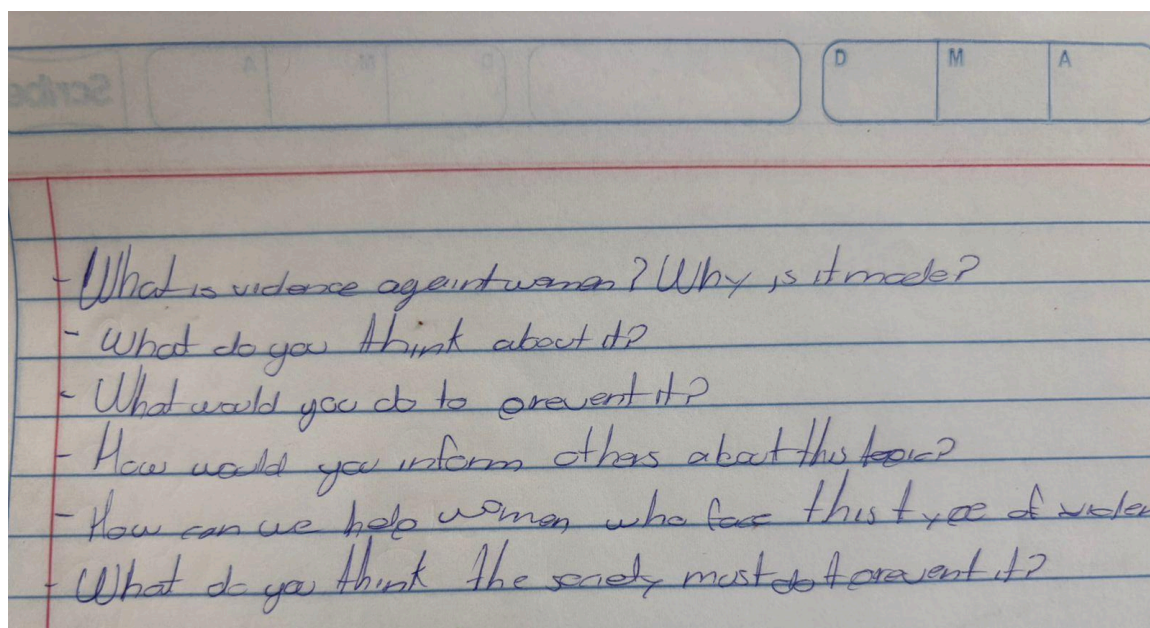 Scribe A M D D M A
- What is violence againt women? Why is it made?
- What do you think about it?
- What would you do to prevent it?
- How would you inform others about this topic?
- How can we help women who face this type of violen
- What do you think the society must do t prevent it?